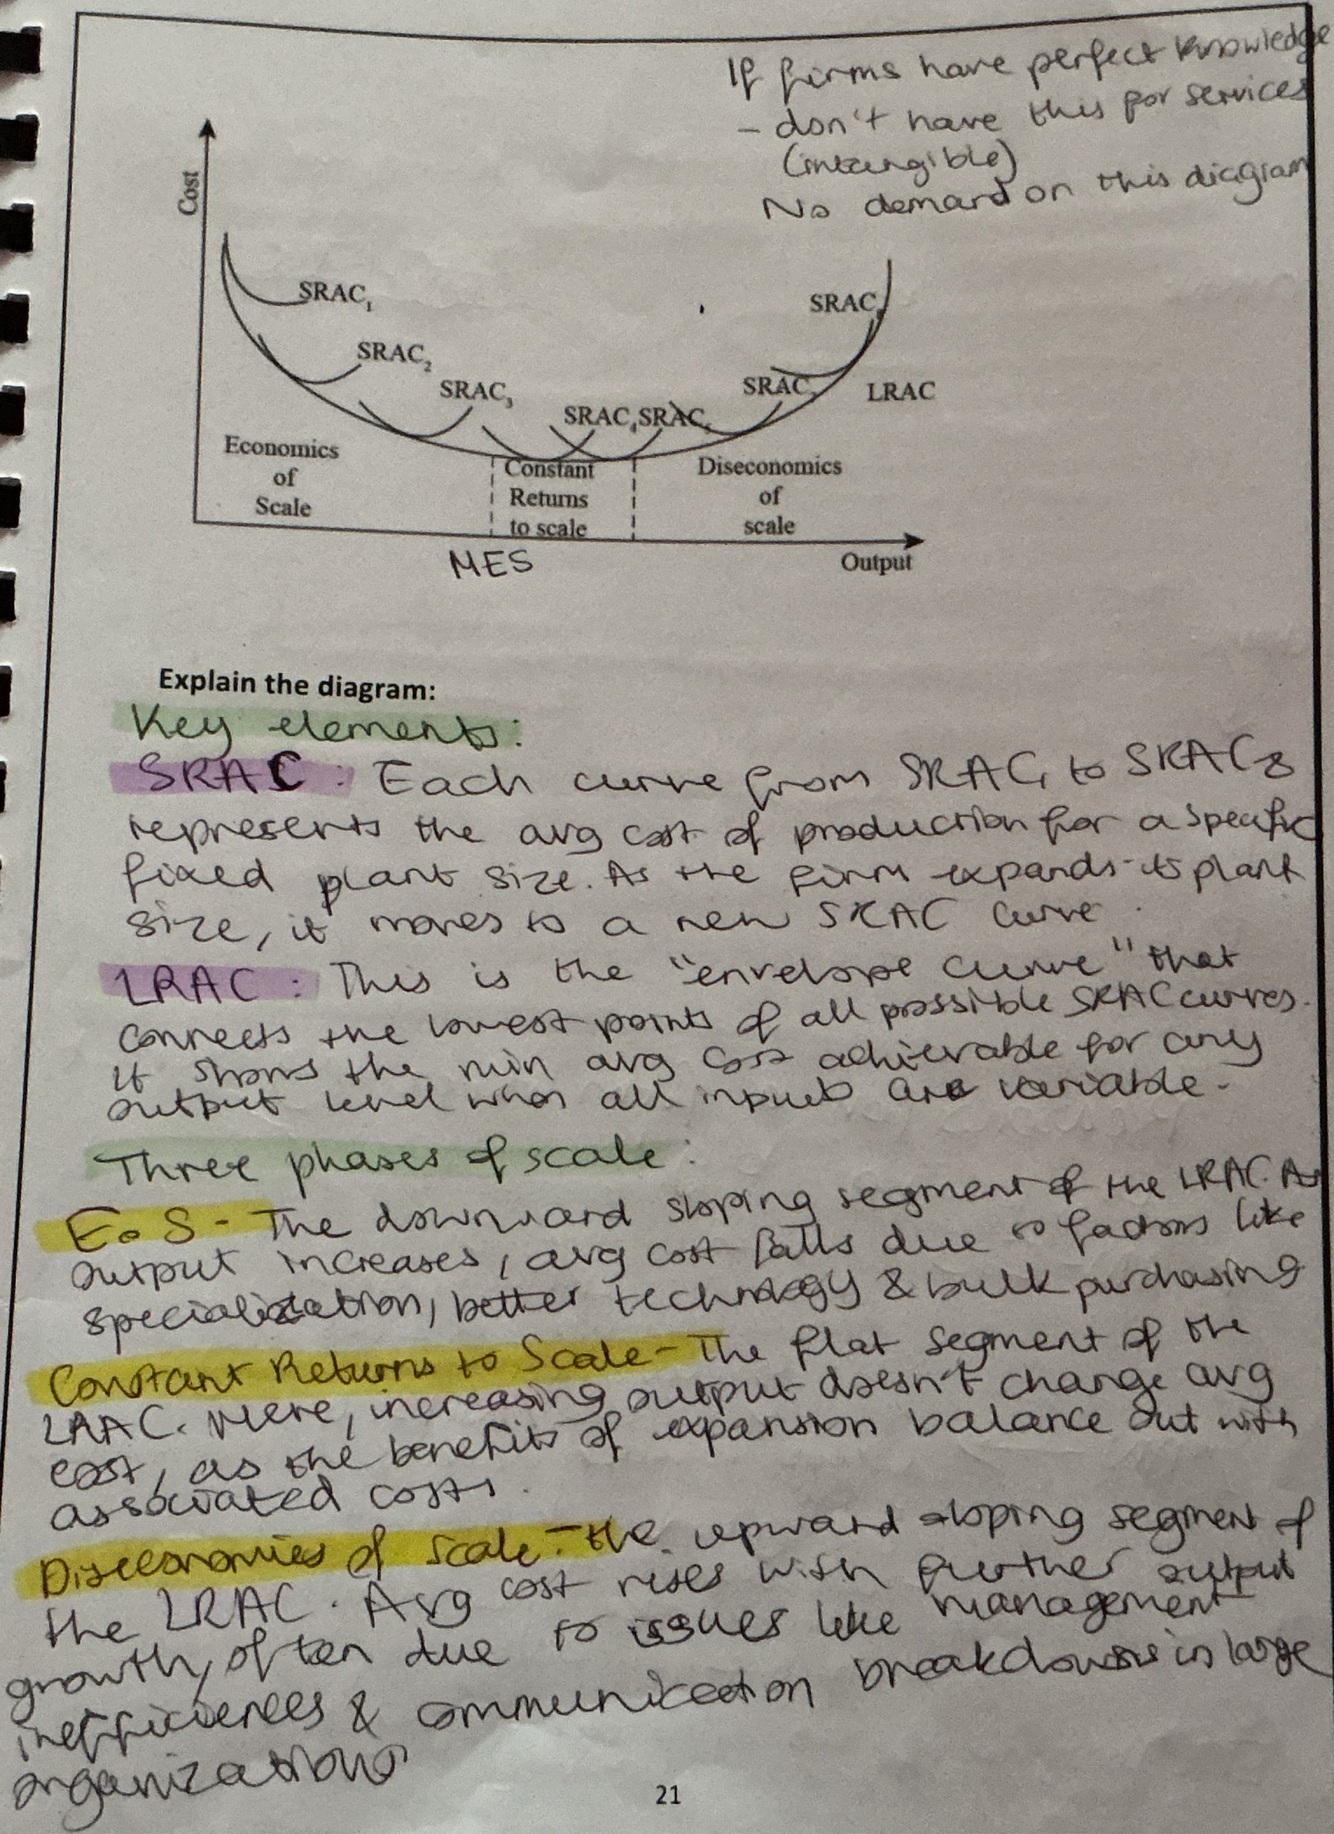 If firms have perfect knowledge
- don't have this for services
(intangible)
No demand on this diagram
Cost
SRAC1
SRAC2
SRAC3
SRAC4 SRAC5
SRAC
SRAC
LRAC
Economics
of
Scale
Constant
Returns
to scale
Diseconomics
of
scale
MES
Output
Explain the diagram:
Key elements:
SRAC: Each curve from SRAC1 to SRAC8
represents the avg cost of production for a specific
fixed plant size. As the firm expands its plant
size, it moves to a new SRAC curve.
LRAC: This is the "envelope curve" that
connects the lowest points of all possible SRAC curves.
It shows the min avg cost achievable for any
output level when all inputs are variable.
Three phases of scale:
EoS - The downward sloping segment of the LRAC. As
output increases, avg cost falls due to factors like
specialization, better technology & bulk purchasing
Constant Returns to Scale - The flat segment of the
LRAC. Here, increasing output doesn't change avg
cost, as the benefits of expansion balance out with
associated costs.
Diseconomies of scale - the upward sloping segment of
the LRAC. Avg cost rises with further output
growth, often due to issues like management
inefficiences & communication breakdowns in large
organizations
21